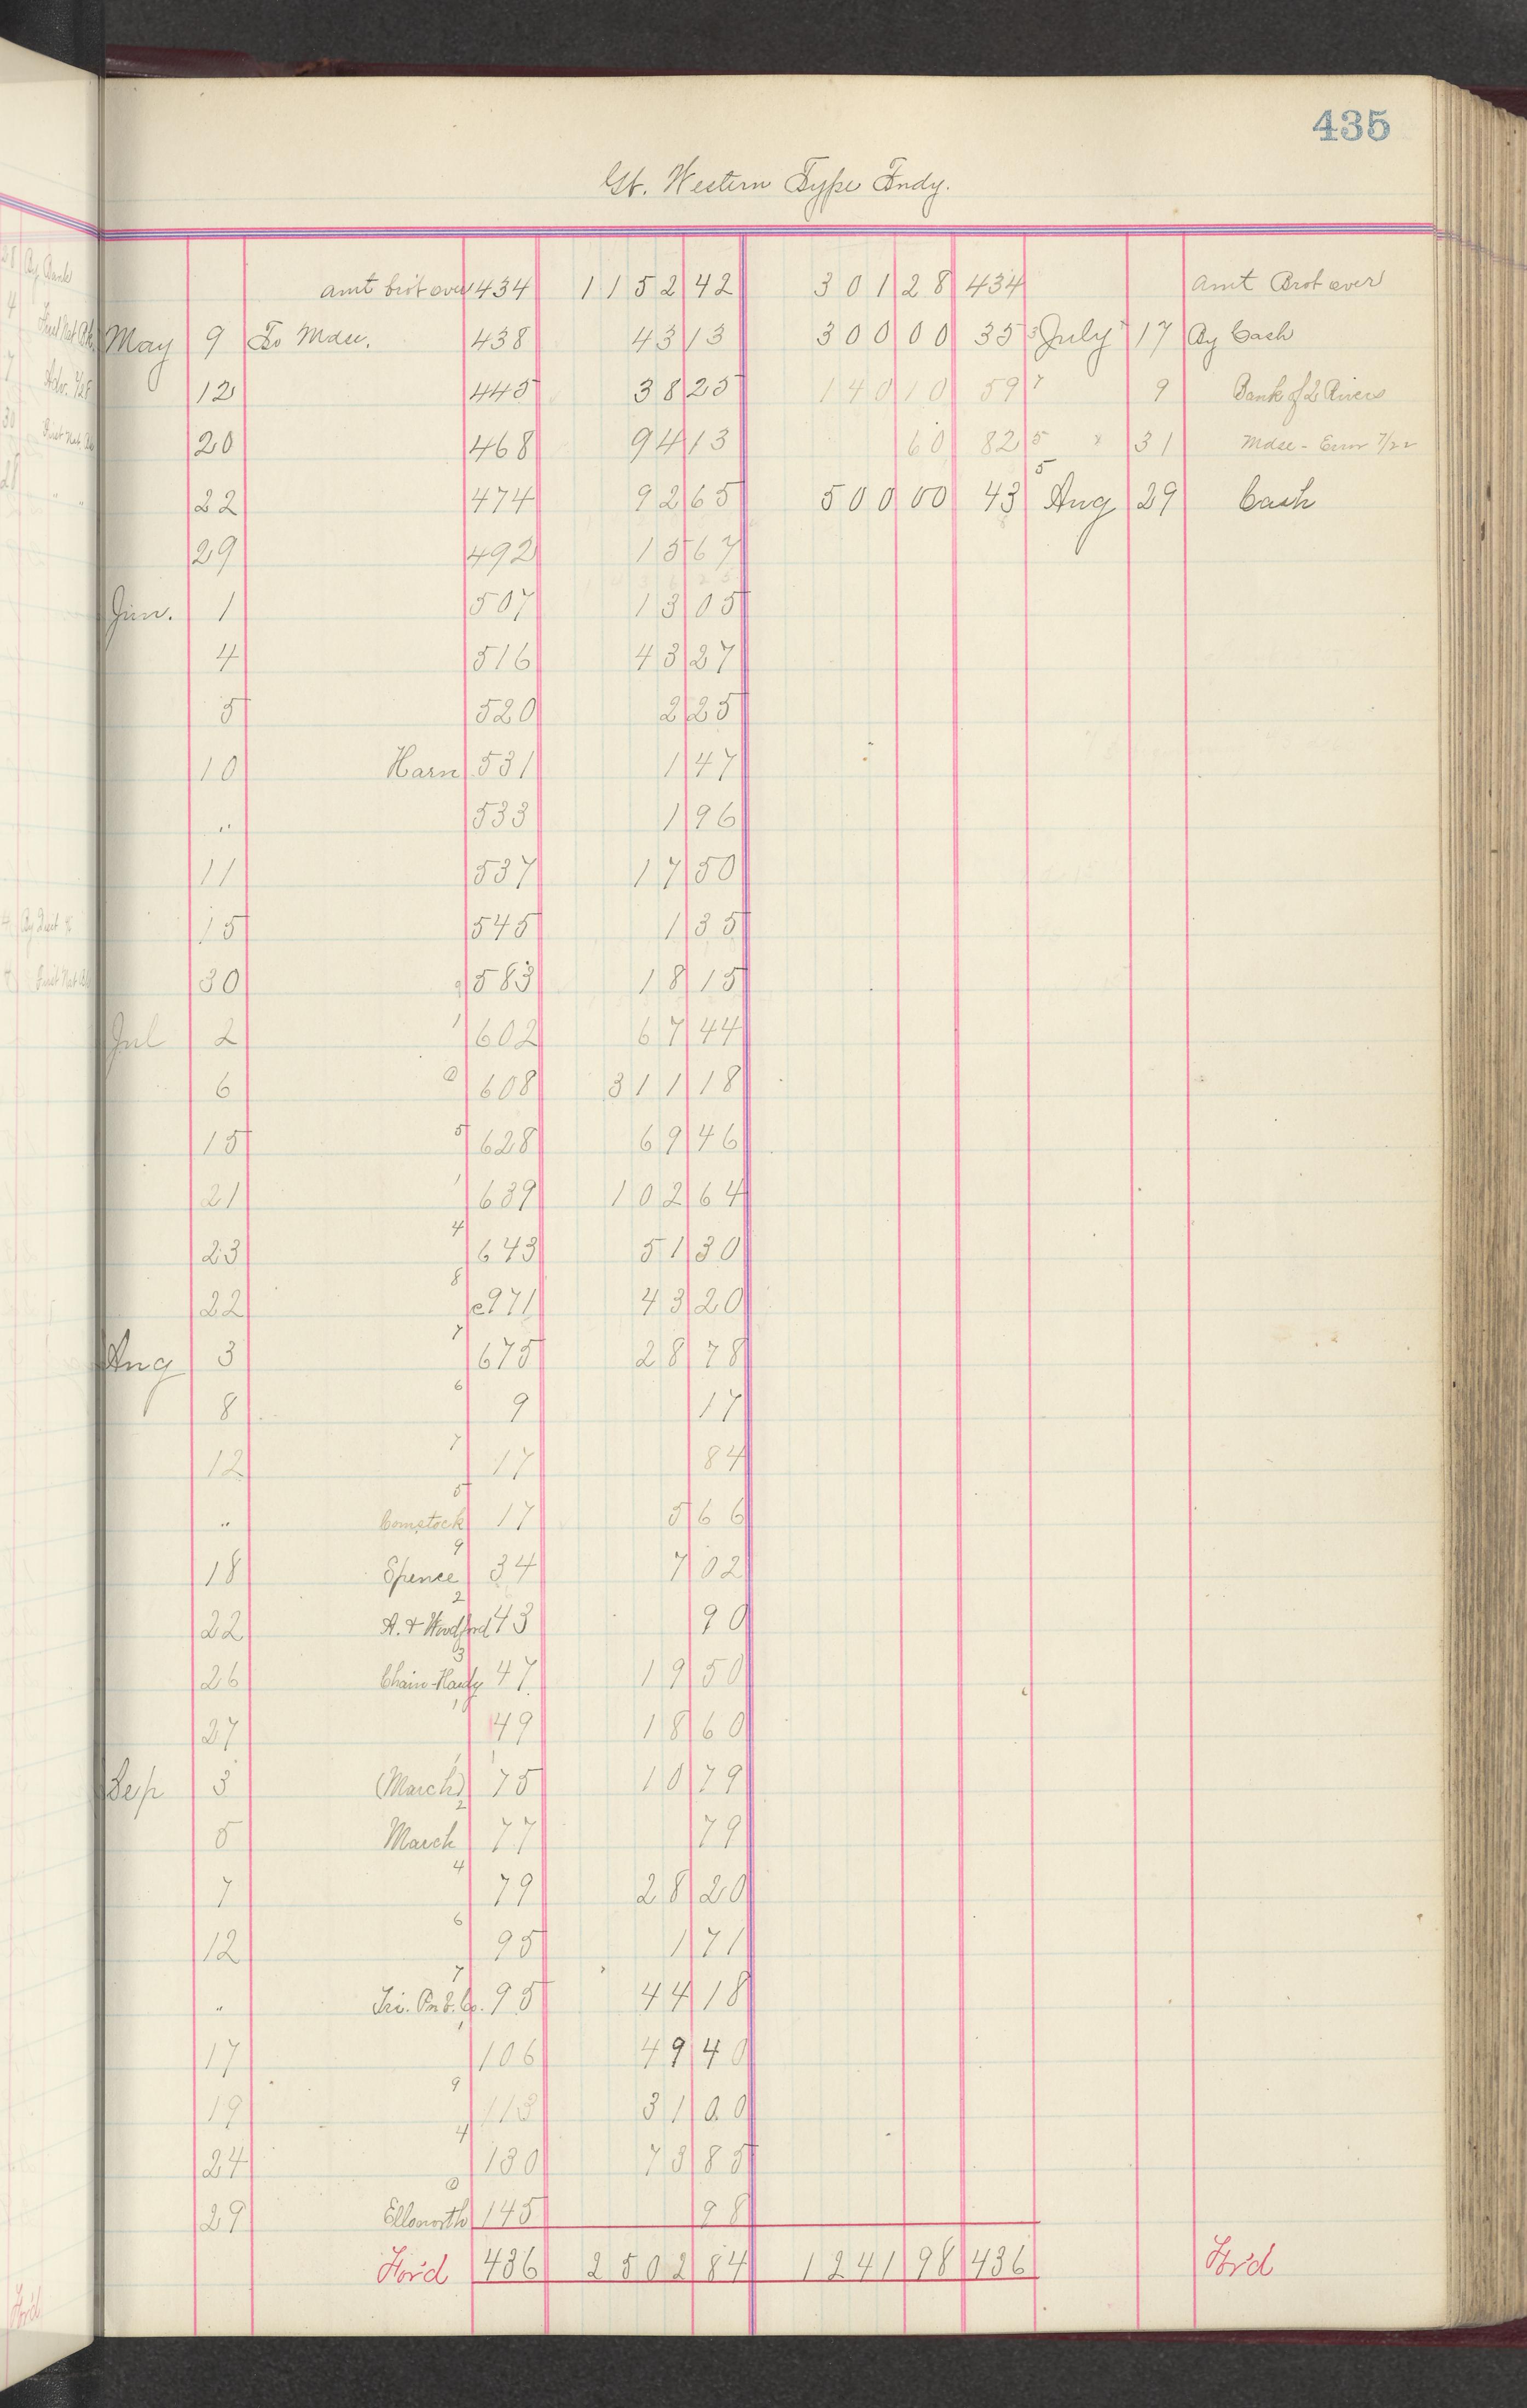 435
Gt. Western Type Fndy.
amt brot over 434 1152 42 301 28 434 amt Brot over
May 9 To Mdse. 438 43 13 300 00 35 3 July 17 By Cash
12 445 38 25 140 10 59 7 9 Bank of 2 Rivers
20 468 94 13 60 82 5 " 31 Mdse - Error 7/22
22 474 92 65 500 00 43 5 Aug 29 Cash
29 492 15 67
Jun. 1 507 13 05
4 516 43 27
5 520 2 25
10 Harn 531 1 47
" 533 1 96
11 537 17 50
15 545 1 35
30 583 18 15
Jul 2 1 602 67 44
6 0 608 311 18
15 5 628 69 46
21 1 639 102 64
23 4 643 51 30
22 8 c971 43 20
Aug 3 7 675 28 78
8 6 9 17
12 7 17 84
" 5 Comstock 17 5 66
18 9 Spence 34 7 02
22 2 A. & Windford 43 90
26 3 Chain-Hardy 47 19 50
27 1 49 18 60
Sep 3 1 (March) 75 10 79
5 2 March 77 79
7 4 79 28 20
12 6 95 1 71
" 7 Tri. Pn & Co. 95 44 18
17 1 106 49 40
19 9 113 31 00
24 4 130 73 85
29 0 Ellsworth 145 98
For'd 436 2502 84 1241 98 436 For'd